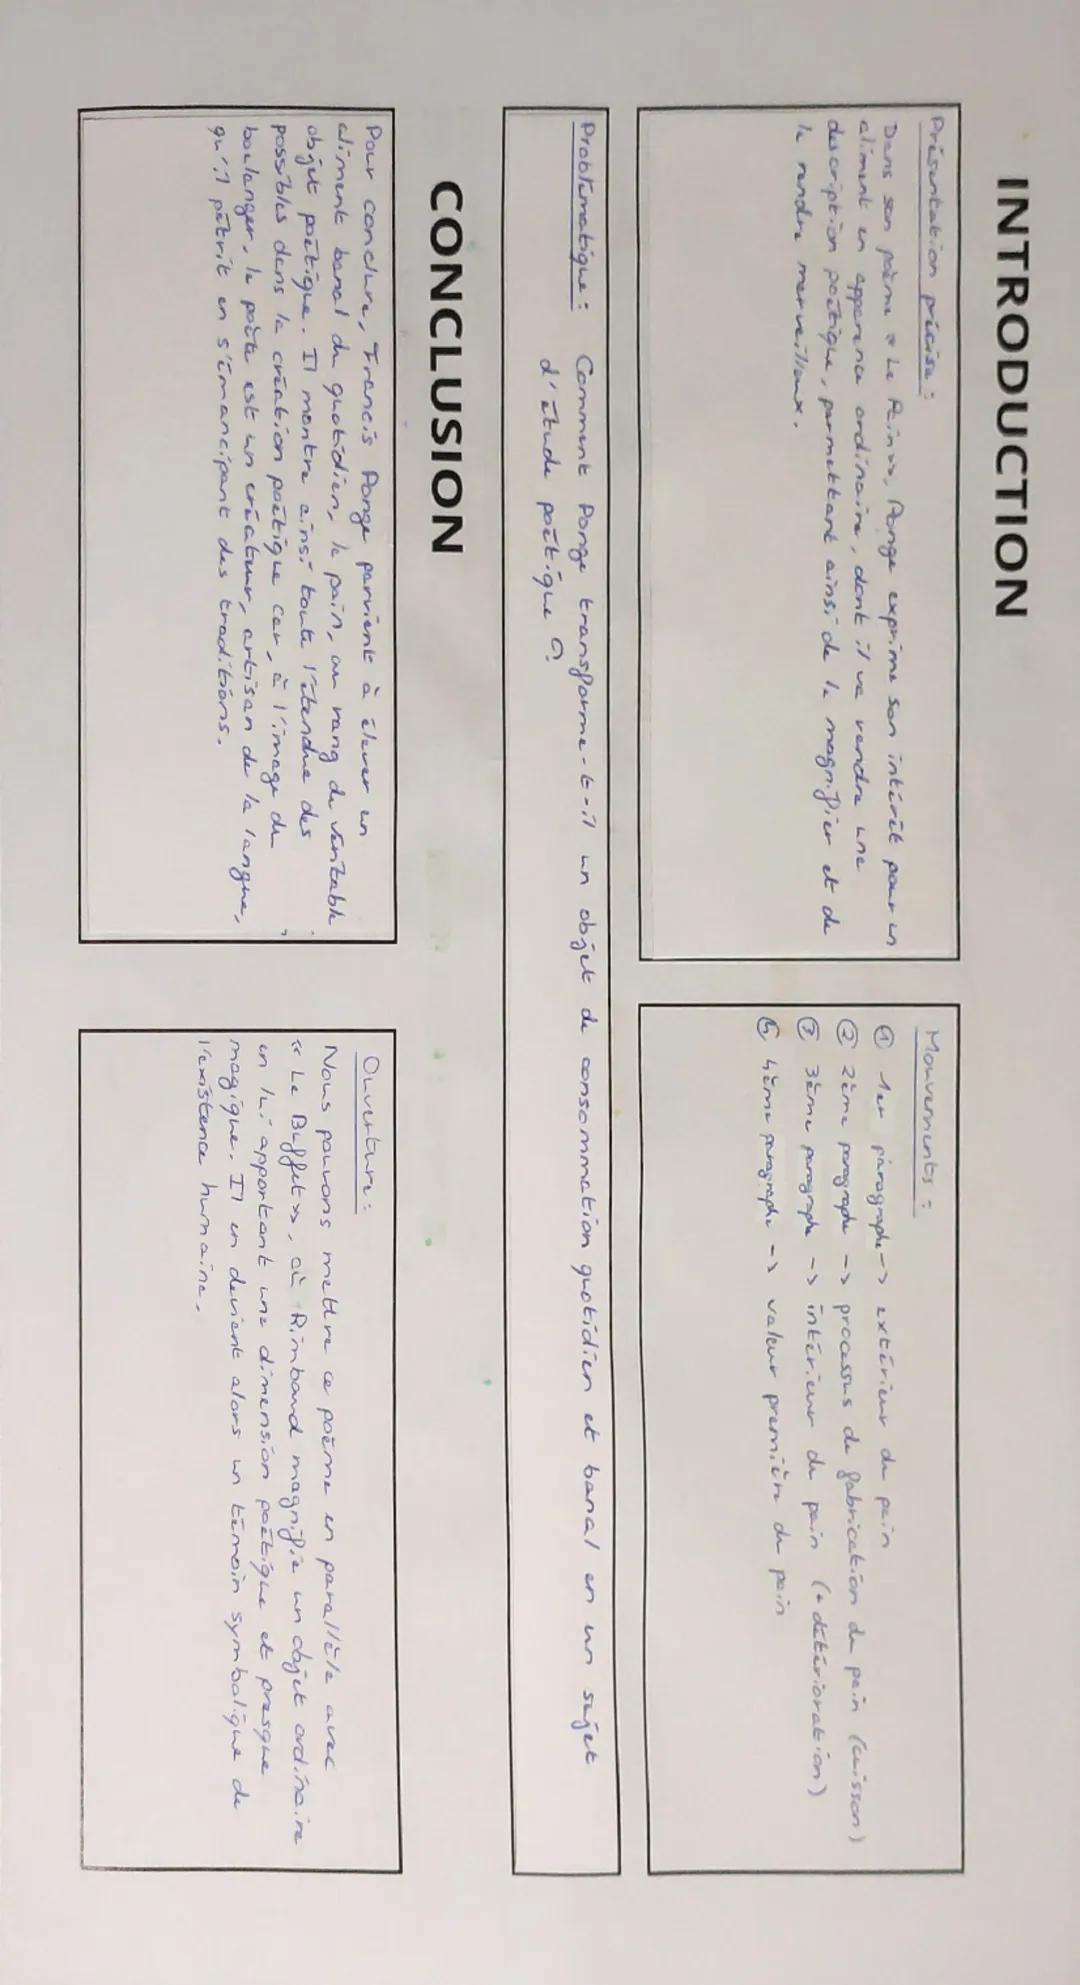 INTRODUCTION
Présentation précise :
Dans son poème « Le Pain », Ponge exprime son intérêt pour un
aliment en apparence ordinaire, dont il va rendre une
description poétique, permettant ainsi de le magnifier et de
le rendre merveilleux.
Mouvements :
① 1er paragraphe -> extérieur du pain
② 2ème paragraphe -> processus de fabrication du pain (cuisson)
③ 3ème paragraphe -> intérieur du pain (+ détérioration)
④ 4ème paragraphe -> valeur première du pain
Problématique : Comment Ponge transforme-t-il un objet de consommation quotidien et banal en un sujet
d'étude poétique ?
CONCLUSION
Pour conclure, Francis Ponge parvient à élever un
aliment banal du quotidien, le pain, au rang de véritable
objet poétique. Il montre ainsi toute l'étendue des
possibles dans la création poétique car, à l'image du
boulanger, le poète est un créateur, artisan de la langue,
qu'il pétrit en s'émancipant des traditions.
Ouverture :
Nous pouvons mettre ce poème en parallèle avec
« Le Buffet », où Rimbaud magnifie un objet ordinaire
en lui apportant une dimension poétique et presque
magique. Il en devient alors un témoin symbolique de
l'existence humaine.